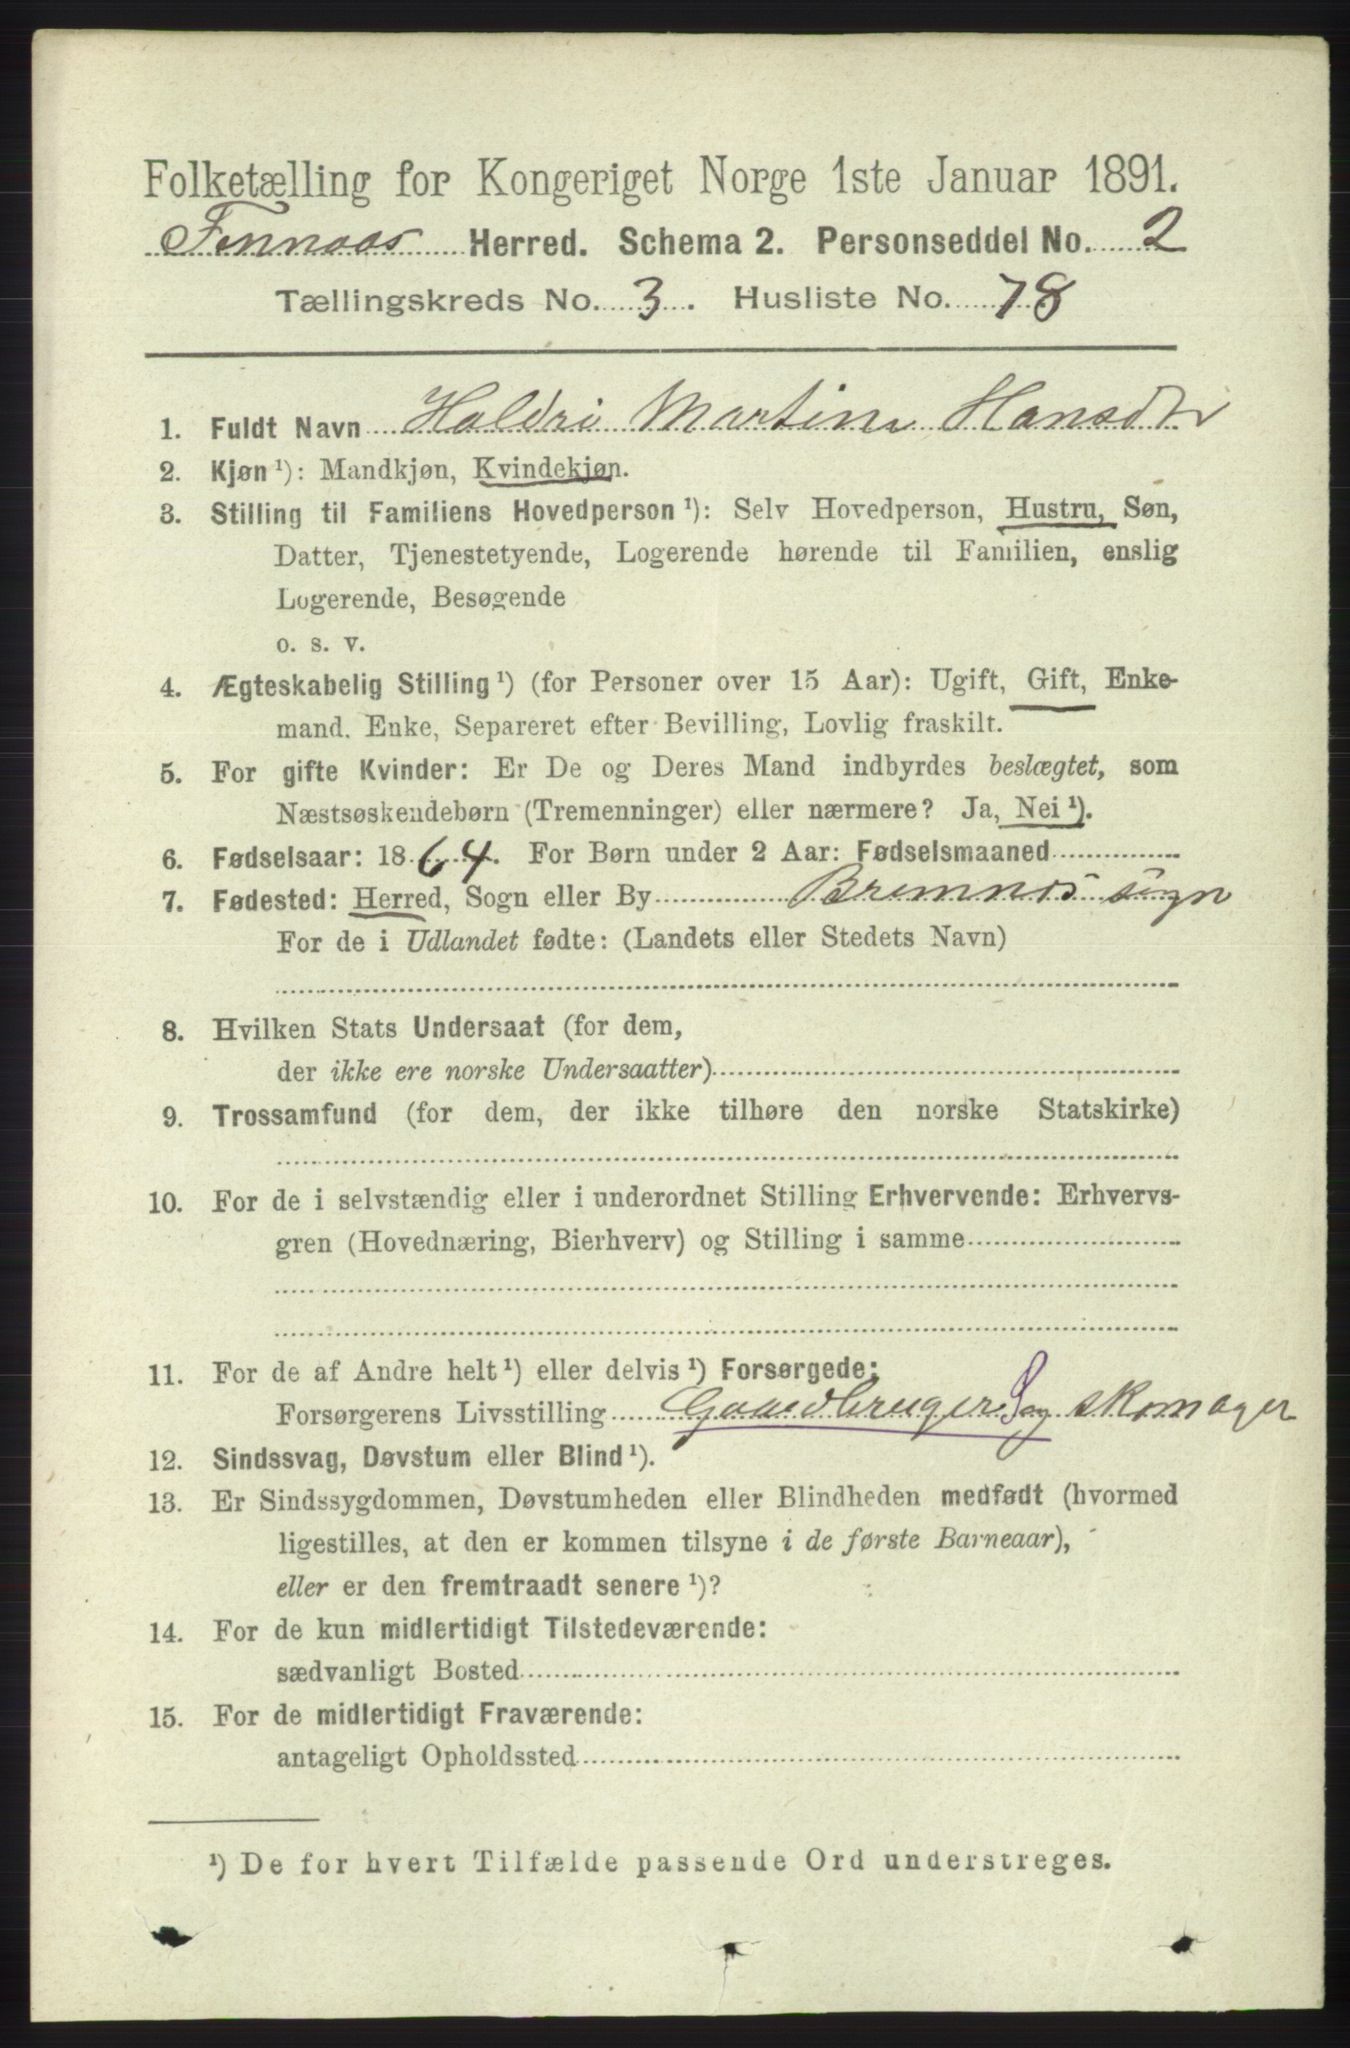 Folketælling for Kongeriget Norge 1ste Januar 1891.
Finnaas Herred. Schema 2. Personseddel No. 2
Tællingskreds No. 3. Husliste No. 78
1. Fuldt Navn Haldri Martine Hansdtr
2. Kjøn ¹): Mandkjøn, Kvindekjøn.
3. Stilling til Familiens Hovedperson ¹): Selv Hovedperson, Hustru, Søn,
Datter, Tjenestetyende, Logerende hørende til Familien, enslig
Logerende, Besøgende
o. s. v.
4. Ægteskabelig Stilling ¹) (for Personer over 15 Aar): Ugift, Gift, Enke-
mand. Enke, Separeret efter Bevilling, Lovlig fraskilt.
5. For gifte Kvinder: Er De og Deres Mand indbyrdes beslægtet, som
Næstsøskendebørn (Tremenninger) eller nærmere? Ja, Nei ¹).
6. Fødselsaar: 1864. For Børn under 2 Aar: Fødselsmaaned
7. Fødested: Herred, Sogn eller By Bremnes sogn
For de i Udlandet fødte: (Landets eller Stedets Navn)
8. Hvilken Stats Undersaat (for dem,
der ikke ere norske Undersaatter)
9. Trossamfund (for dem, der ikke tilhøre den norske Statskirke)
10. For de i selvstændig eller i underordnet Stilling Erhvervende: Erhvervs-
gren (Hovednæring, Bierhverv) og Stilling i samme
11. For de af Andre helt ¹) eller delvis ¹) Forsørgede:
Forsørgerens Livsstilling Gaardbruger S og skomager
12. Sindssvag, Døvstum eller Blind ¹).
13. Er Sindssygdommen, Døvstumheden eller Blindheden medfødt (hvormed
ligestilles, at den er kommen tilsyne i de første Barneaar),
eller er den fremtraadt senere ¹)?
14. For de kun midlertidigt Tilstedeværende:
sædvanligt Bosted
15. For de midlertidigt Fraværende:
antageligt Opholdssted
¹) De for hvert Tilfælde passende Ord understreges.